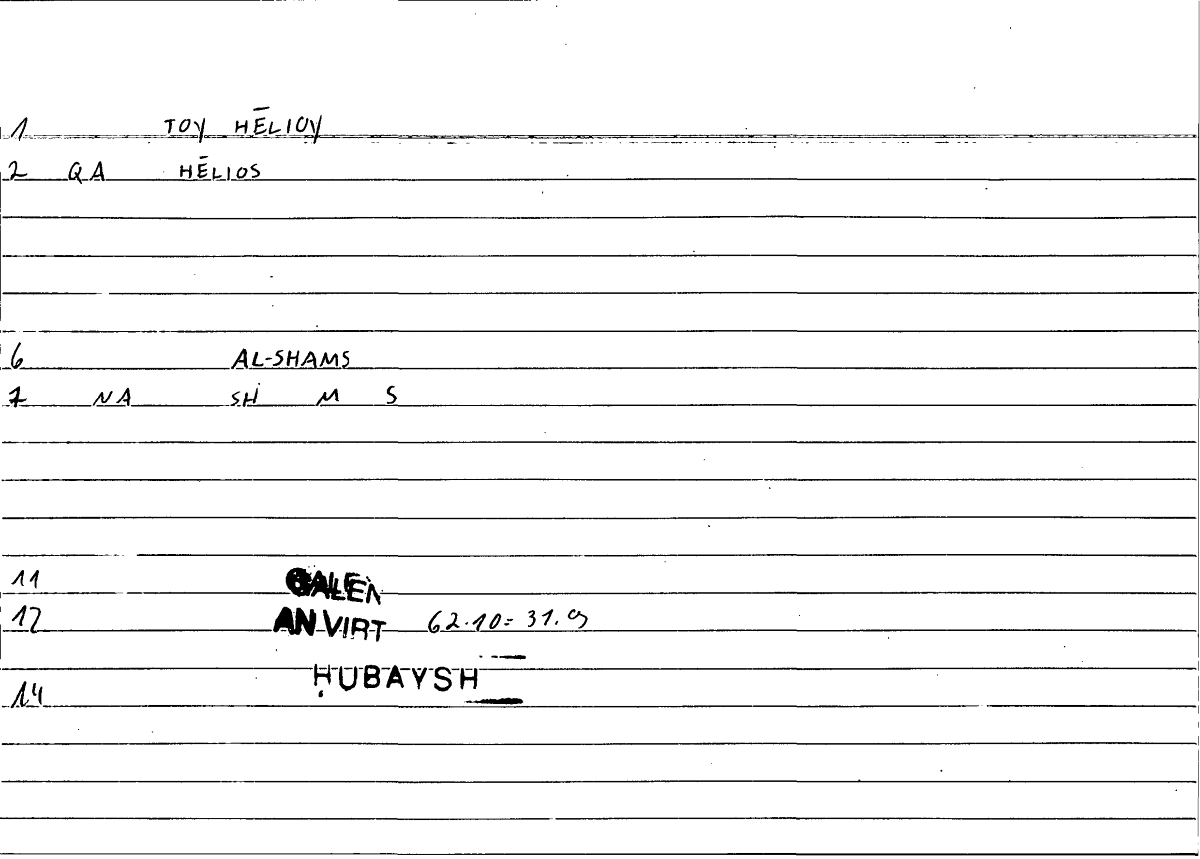 1 TOY HĒLIOY
2 QA HĒLIOS
6 AL-SHAMS
7 NA SH M S
11 GALEN
12 AN VIRT 62.10 = 31.9
ḤUBAYSH
14